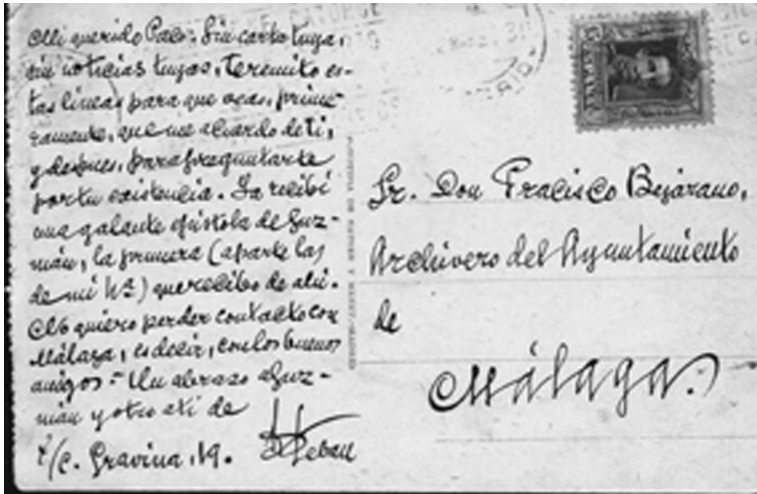 Mi querido Paco: Sin carta tuya,
sin noticias tuyas, te remito es-
tas líneas para que veas, prime-
ramente, que me acuerdo de ti,
y despues, para preguntarte
por tu existencia. Ya recibí
una galante epístola de Guz-
mán, la primera (aparte las
de mi Hª) que recibo de ahí.
No quiero perder contacto con
Málaga, es decir, con los buenos
amigos.- Un abrazo a Guz-
mán y otro a ti de
Esteban
/c. Gravina, 19.
Sr. Don Fracisco Bejarano,
Archivero del Ayuntamiento
de
Málaga.